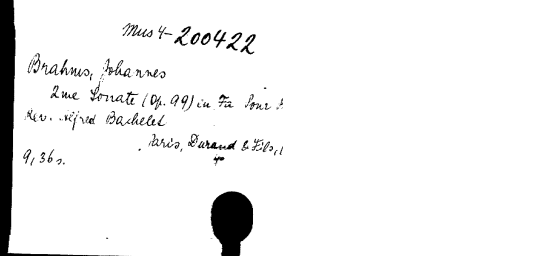 Mus 4-200422
Brahms, Johannes
2me Sonate (Op. 99) in Fa Pour
Rev. Alfred Bachelet
Paris, Durand & Fils,
9, 36 s.